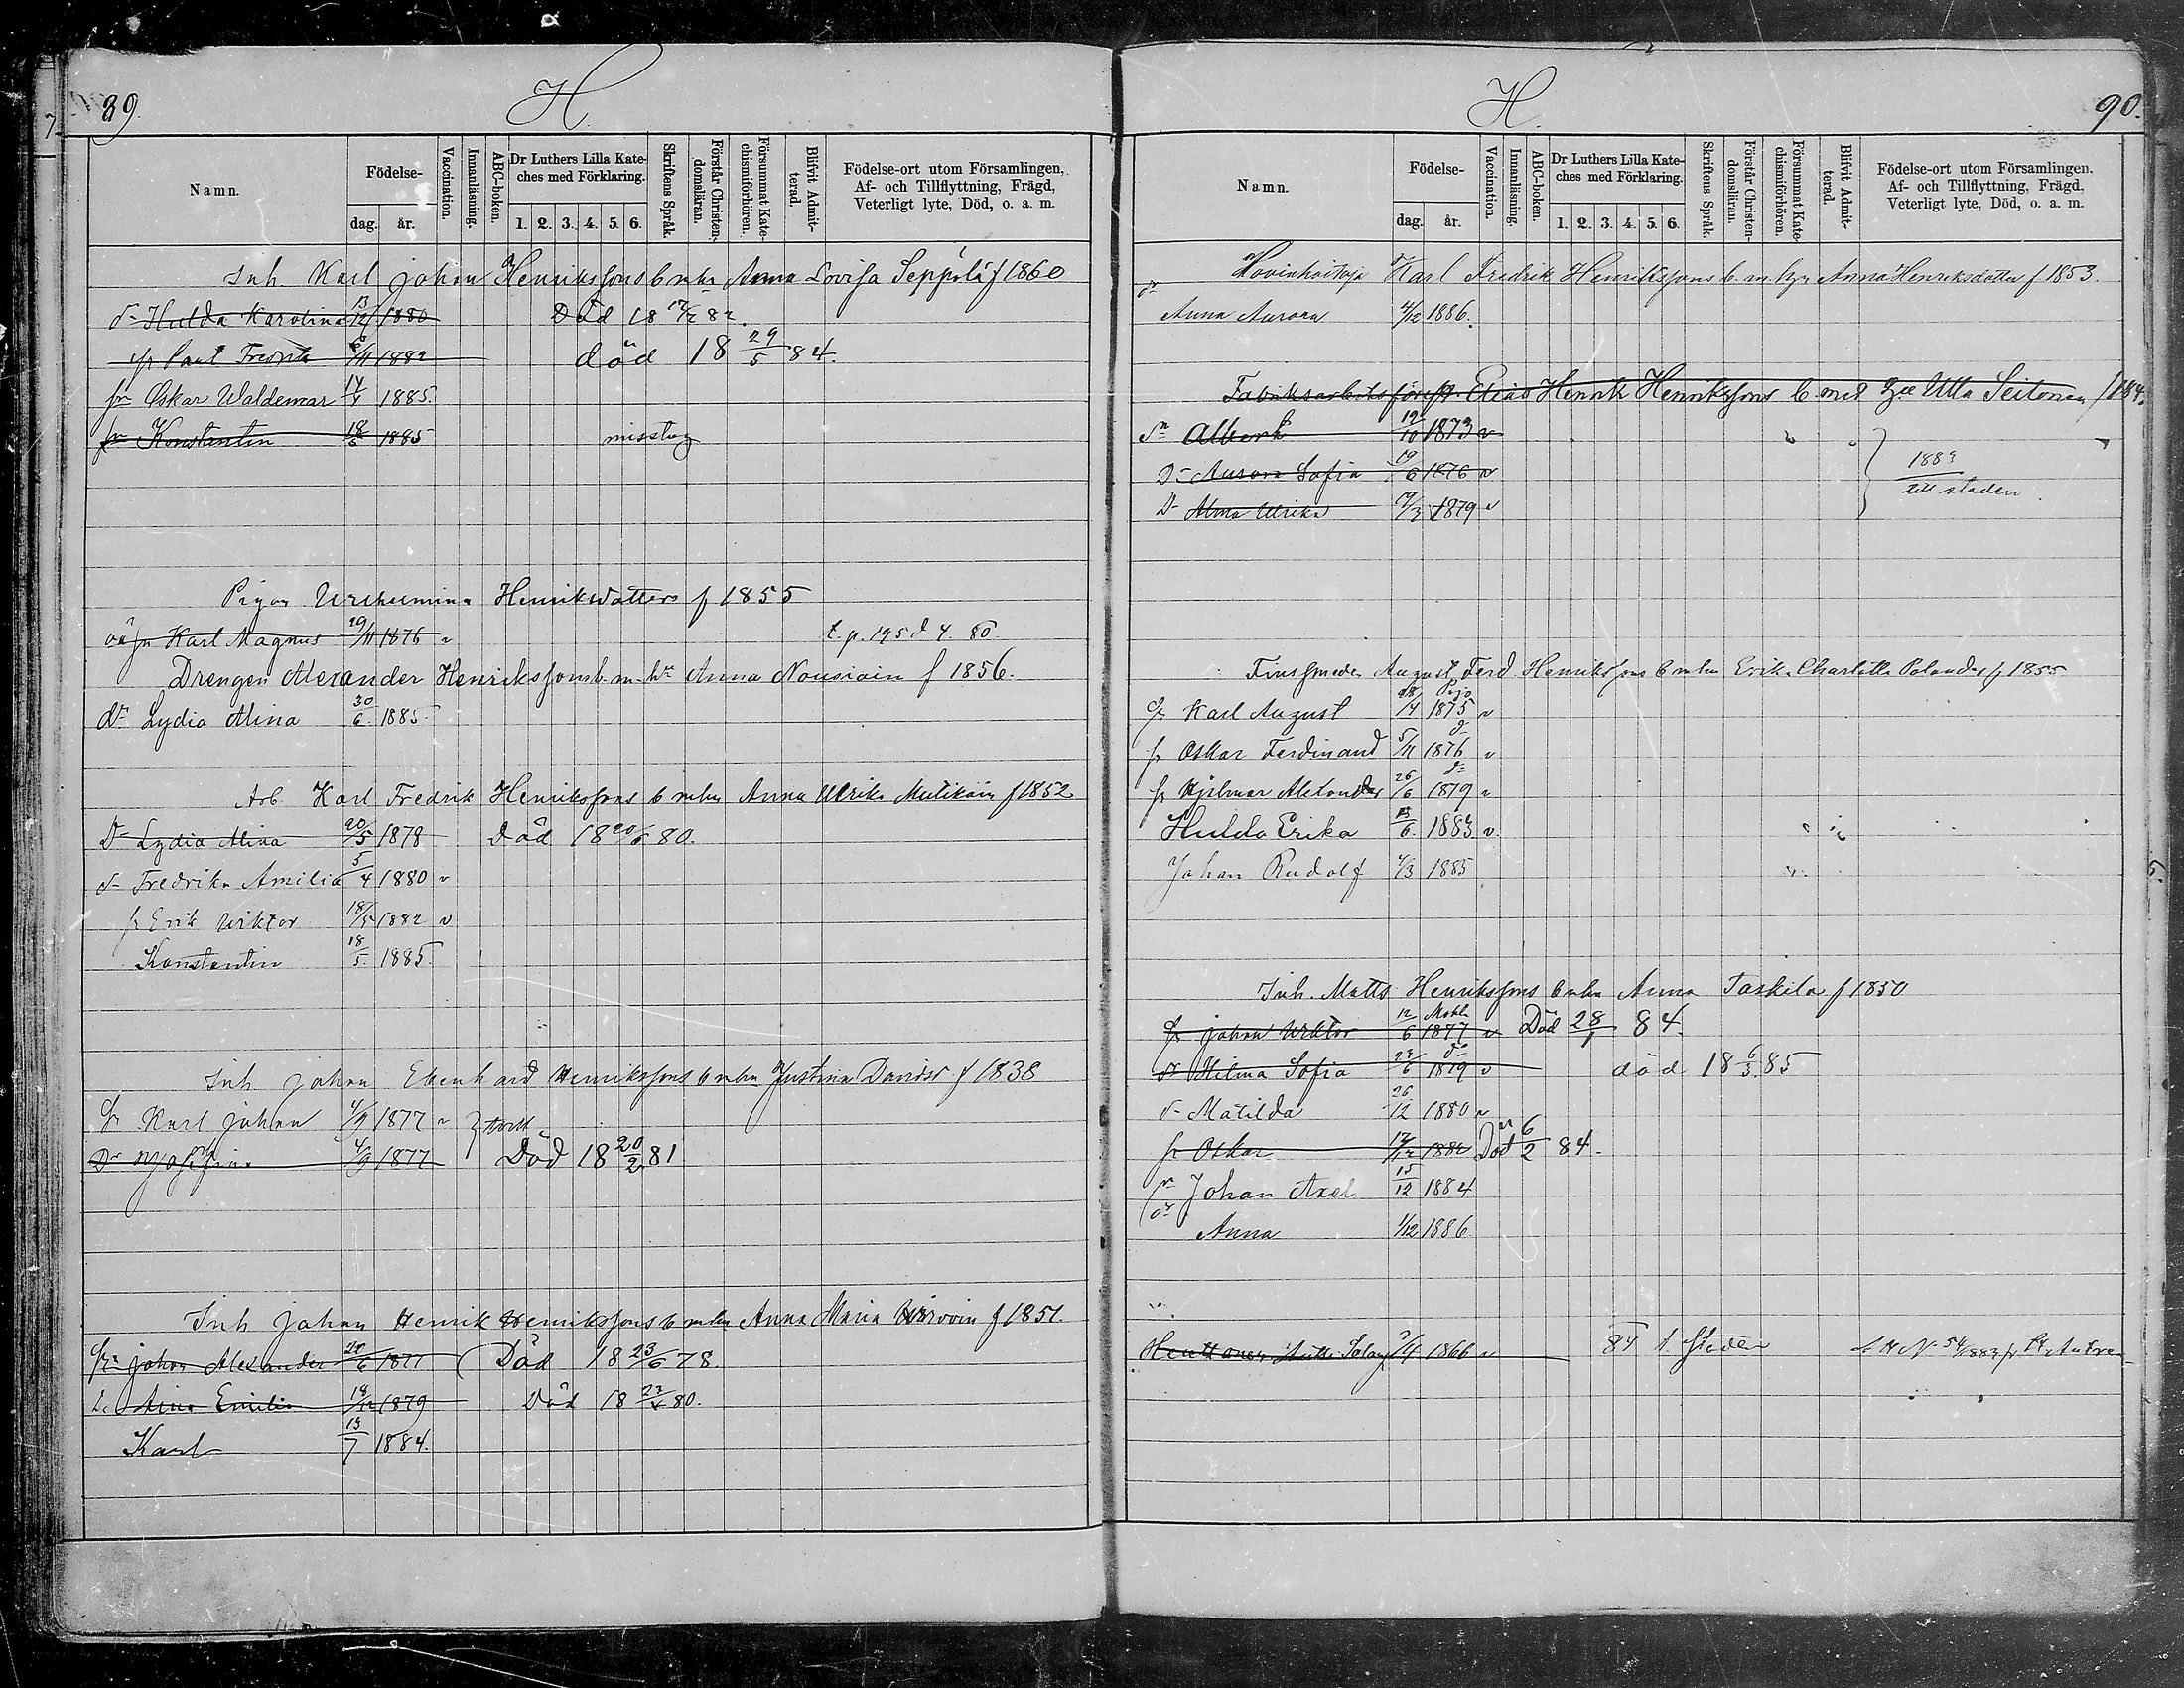 89.
H.
Namn.
Födelse-
dag. år.
Vaccination.
Innanläsning.
ABC-boken.
Dr Luthers Lilla Kate-
ches med Förklaring.
1. 2. 3. 4. 5. 6.
Skriftens Språk.
Förstår Christen-
domsläran.
Försummat Kate-
chismiförhören.
Blifvit Admit-
terad.
Födelse-ort utom Församlingen,
Af- och Tillflyttning, Frägd,
Veterligt lyte, Död, o. a. m.
Inh. Karl Johan Henrikssons b m hu Anna Lovisa Seppälä f 1860
dr Hulda Karolina 13/12 1880 Död 18 17/2 82.
sn Paul Fredrik /11 1882 död 18 29/5 84.
sn Oskar Waldemar 14/4 1885
sn Konstantin 18/5 1885 misstag
Pigan Wilhelmina Henriksdotters f 1855
oä sn Karl Magnus 29/11 1876 v t. p. 195 d 4. 80.
Drengen Alexander Henrikssons b. m. hu Anna Nousiain f 1856.
dr Lydia Alina 30/6 1885
Arb. Karl Fredrik Henrikssons b m hu Anna Ulrika Mutikain f 1852
Dr Lydia Alina 20/5 1878 Död 18 20/5 80.
dr Fredrika Amilia 5/4 1880 v
sn Erik Wiktor 18/5 1882 v
Konstantin 18/5 1885.
Inh Johan Ebenhard Henrikssons b m hu Justina Davidsd f 1838
sn Karl Johan 4/9 1877 v
Dr Josefina 4/9 1877 Död 18 20/2 81
Inh Johan Henrik Henrikssons b m hu Anna Maria Hirvoin f 1851.
sn Johan Alexander /6 1877 Död 18 23/6 78.
Dr Aina Emilia 19/12 1879 Död 18 80.
Karl 13/7 1884.
90.
H.
Namn.
Födelse-
dag. år.
Vaccination.
Innanläsning.
ABC-boken.
Dr Luthers Lilla Kate-
ches med Förklaring.
1. 2. 3. 4. 5. 6.
Skriftens Språk.
Förstår Christen-
domsläran.
Försummat Kate-
chismiförhören.
Blifvit Admit-
terad.
Födelse-ort utom Församlingen,
Af- och Tillflyttning, Frägd,
Veterligt lyte, Död, o. a. m.
Hovinhoitaja Karl Fredrik Henrikssons b. m. hu Anna Henriksdotter f 1853.
dr
Anna Aurora 4/12 1886.
Elias Henrik Henrikssons b med Ulla Seitonen
Sn Albert 19/10 1873 v
Dr Aurora Sofia 19/6 1876 v
Dr Alma Ulrika 19/3 1879 v
1883
till staden.
Finsmeden August Ferd. Henrikssons b m hu Erika Charlotta Polander f 1855
sn Karl August 28/4 1875 v
sn Oskar Ferdinand 5/11 1876 v
sn Hjalmar Alexander 26/6 1879 v
Hulda Erika 1883 v.
Johan Rudolf 4/3 1885
Inh. Matts Henrikssons b m hu Anna Taskila f 1850
sn Johan Wiktor 12/6 1877 v Död 28/1 84.
dr Hilma Sofia /6 1879 v död 18 6/3 85
dr Matilda 26/12 1880 v
sn Oskar 17/12 1882 Död 6/2 84.
sn Johan Axel 15/12 1884
dr
Anna 1/12 1886.
Henttonen 1866 v 84 t. staden